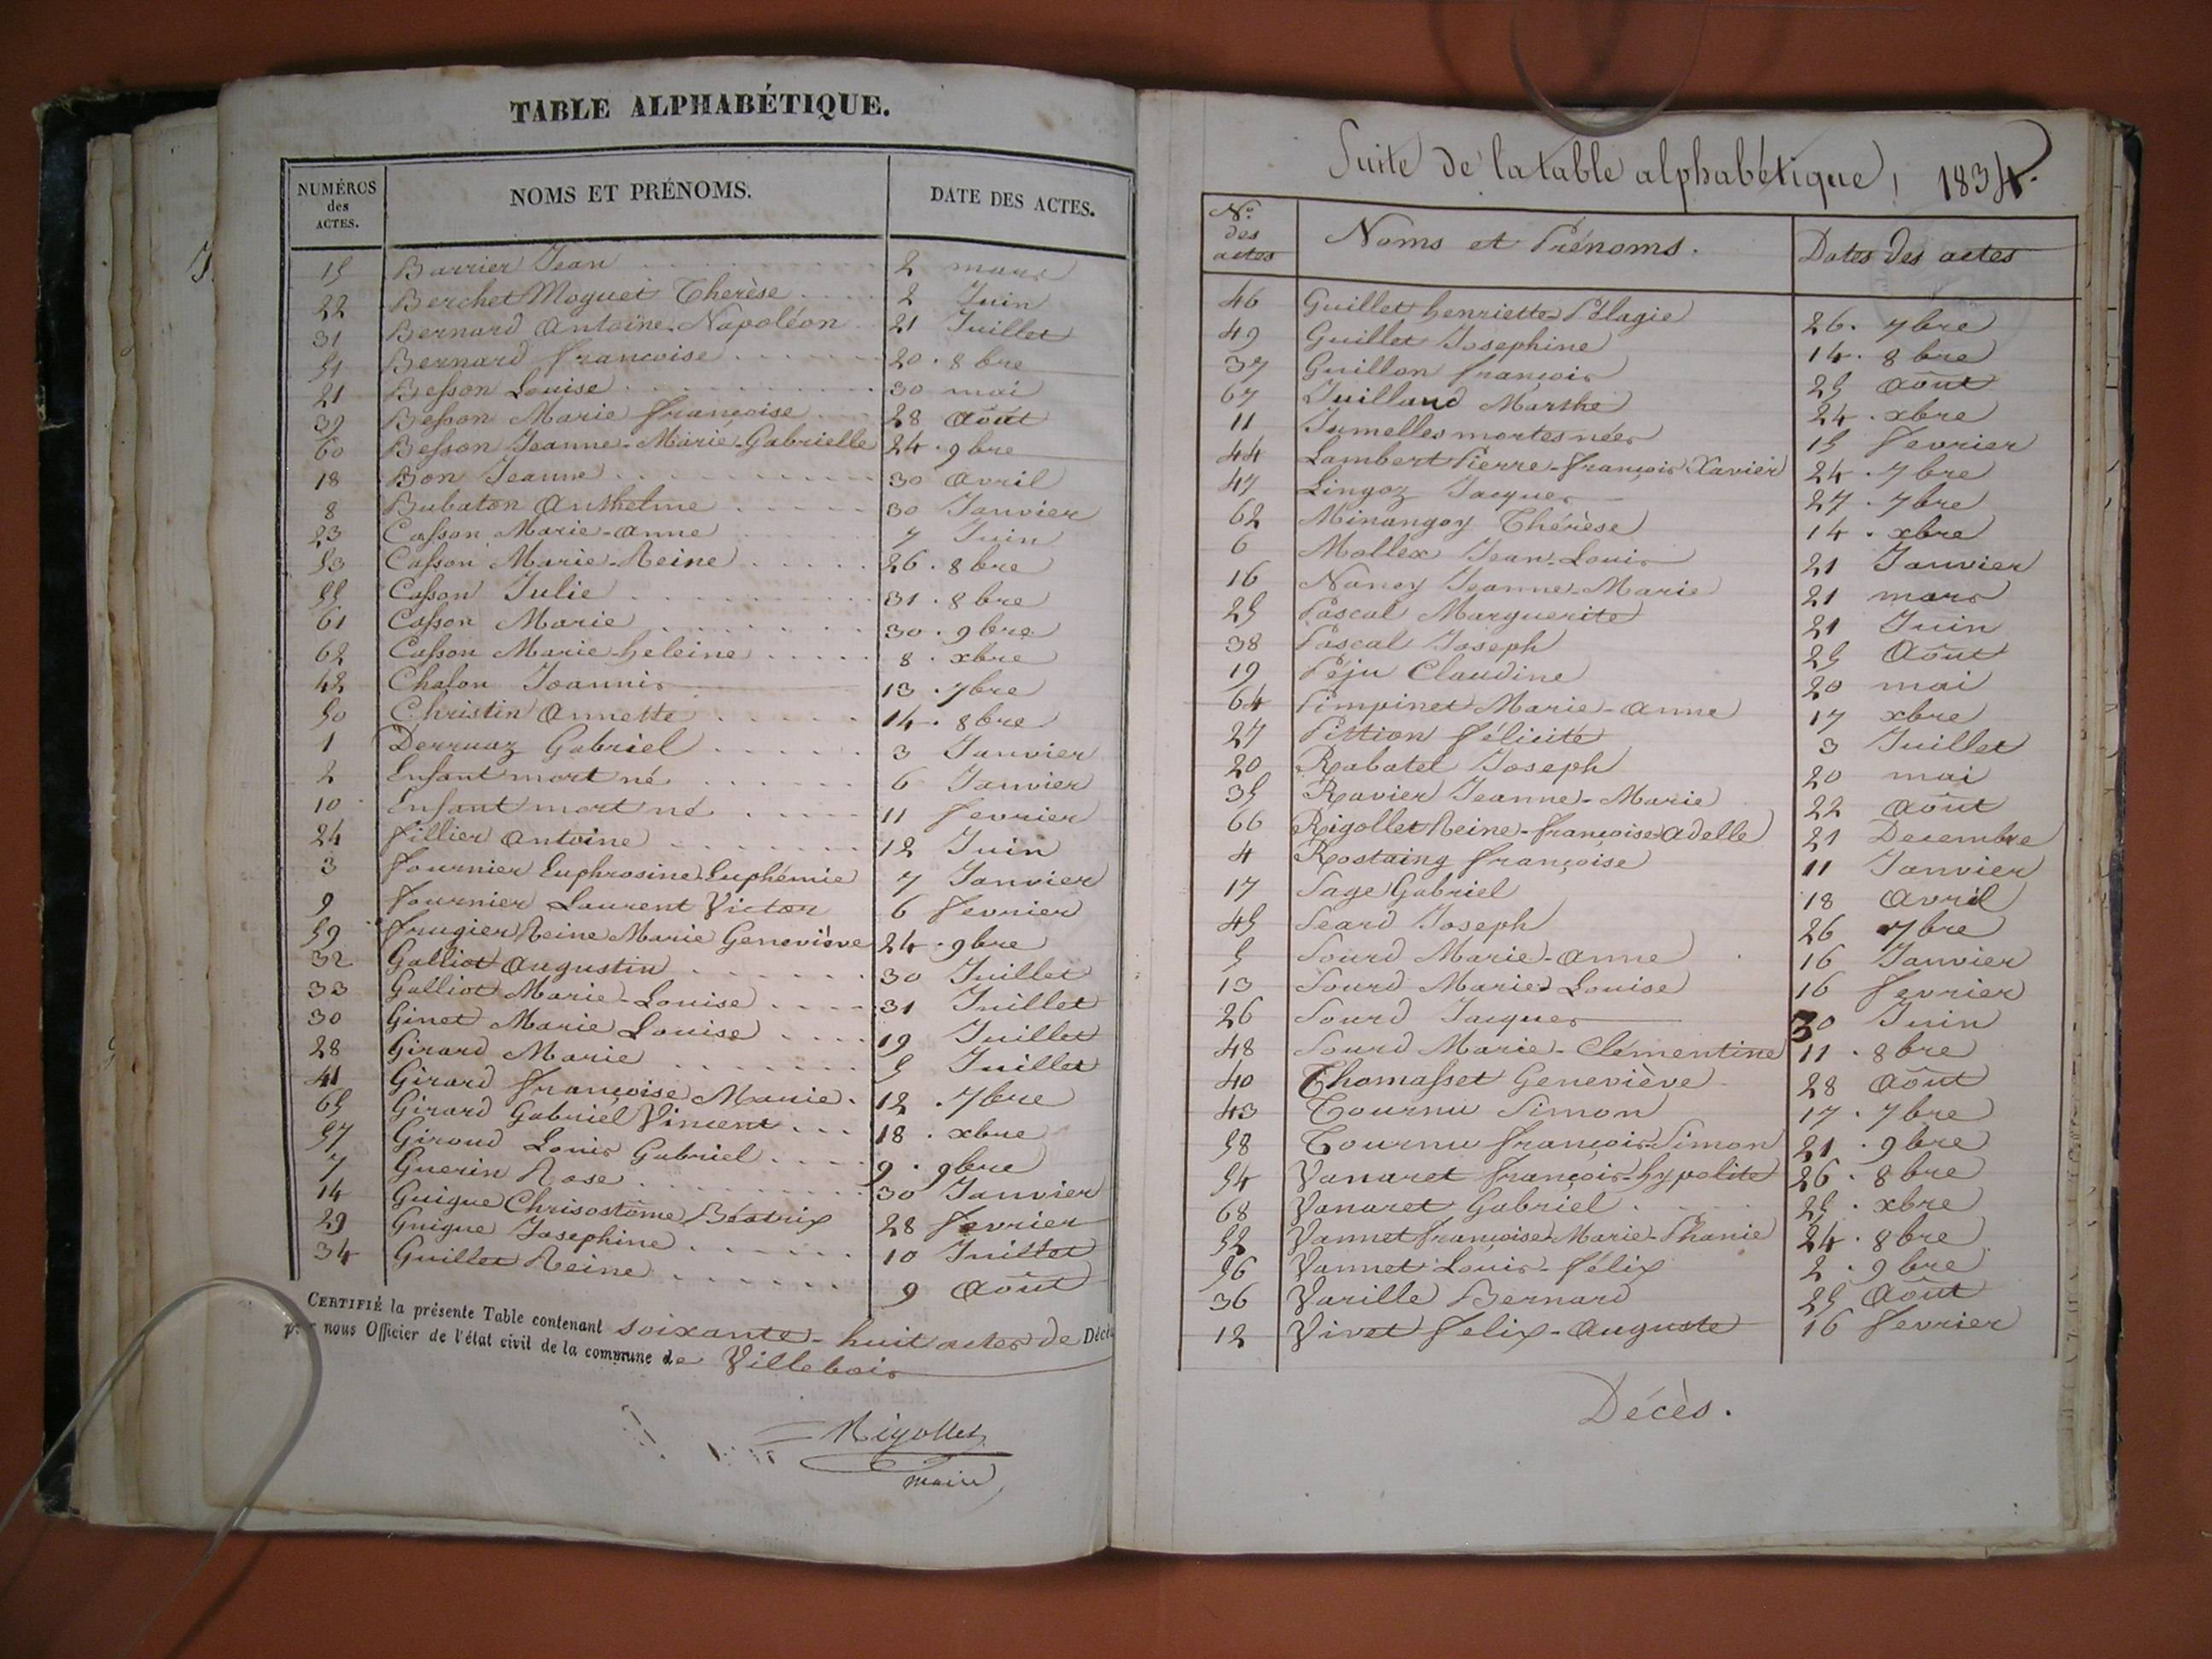 TABLE ALPHABÉTIQUE.
NUMÉROS des ACTES. NOMS ET PRÉNOMS. DATE DES ACTES.
15 Barrier Jean 2 mars
22 Berchet Moguet Therèse 2 Juin
31 Bernard Antoine Napoléon 21 Juillet
51 Bernard françoise 20 . 8bre
21 Besson Louise 30 mai
39 Besson Marie françoise 28 Août
60 Besson Jeanne-Marie-Gabrielle 24 . 9bre
18 Bon Jeanne 30 Avril
8 Bubaton Anthelme 30 Janvier
23 Casson Marie-Anne 7 Juin
53 Casson Marie-Reine 26 . 8bre
55 Casson Julie 31 . 8bre
61 Casson Marie 30 . 9bre
62 Casson Marie heleine 8 . xbre
42 Chalon Joannis 13 . 7bre
50 Christin Annette 14 . 8bre
1 Derruaz Gabriel 3 Janvier
2 Enfant mort né 6 Janvier
10 Enfant mort né 11 fevrier
24 fillier Antoine 12 Juin
3 fournier Euphrosine Euphémie 7 Janvier
9 fournier Laurent Victor 6 fevrier
59 frugier Reine Marie Geneviève 24 . 9bre
32 Galliot Augustin 30 Juillet
33 Galliot Marie-Louise 31 Juillet
30 Ginet Marie Louise 19 Juillet
28 Girard Marie 5 Juillet
41 Girard françoise Marie 12 . 7bre
65 Girard Gabriel Vincent 18 . xbre
57 Giroud Louis Gabriel 9 . 9bre
7 Guerin Rose 30 Janvier
14 Guigue Chrisostôme Béatrix 28 fevrier
29 Guigue Josephine 10 Juillet
34 Guillet Reine 9 Août
CERTIFIÉ la présente Table contenant soixante-huit actes de Décès
par nous Officier de l'état civil de la commune de Villebois
Rigollet
maire
Suite de la table alphabétique, 1834.
Nos des actes Noms et Prénoms. Dates des actes
46 Guillet henriette-Pélagie 26 . 7bre
49 Guillet Josephine 14 . 8bre
37 Guillon françois 25 Août
67 Juilland Marthe 24 . xbre
11 Jumelles mortes nées 15 fevrier
44 Lambert Pierre-françois Xavier 24 . 7bre
47 Lingoz Jacques 27 . 7bre
62 Minangoy Thérèse 14 . xbre
6 Mollex Jean-Louis 21 Janvier
16 Nancy Jeanne-Marie 21 mars
25 Pascal Marguerite 21 Juin
38 Pascal Joseph 25 Août
19 Péju Claudine 20 mai
64 Pimpinet Marie-Anne 17 xbre
27 Pittion félicité 3 Juillet
20 Rabatel Joseph 20 mai
35 Ravier Jeanne-Marie 22 Août
66 Rigollet Reine-françoise Adelle 21 Decembre
4 Rostaing françoise 11 Janvier
17 Sage Gabriel 18 Avril
45 Seard Joseph 26 7bre
5 Sourd Marie-Anne 16 Janvier
13 Sourd Marie Louise 16 fevrier
26 Sourd Jacques 30 Juin
48 Sourd Marie-Clémentine 11 . 8bre
40 Thomasset Geneviève 28 Août
43 Tournu Simon 17 . 7bre
58 Tournu françois-Simon 21 . 9bre
54 Vanaret françois-hypolite 26 . 8bre
68 Vanaret Gabriel 25 . xbre
52 Vannet françoise Marie-Phanie 24 . 8bre
56 Vannet Louis-félix 2 . 9bre
36 Varille Bernard 25 Août
12 Vivet felix-Auguste 16 fevrier
Décès.